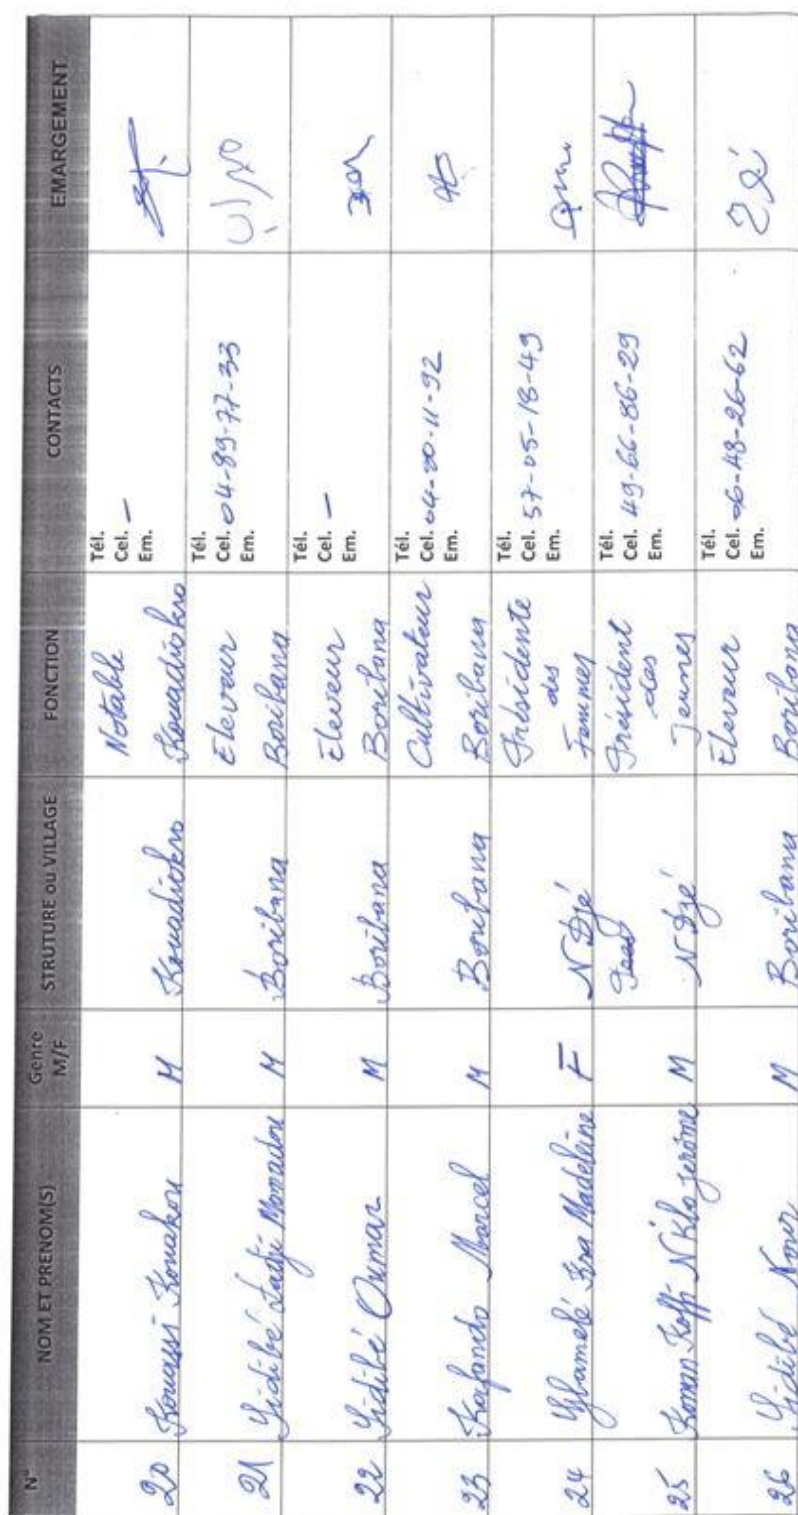 N° NOM ET PRENOM(S) Genre M/F STRUTURE ou VILLAGE FONCTION CONTACTS EMARGEMENT
20 Kouassi Kouakou M Kouadiokro Notable Kouadiokro Tél. Cel. – Em.
21 Sidibé Ladji Mamadou M Boribana Eleveur Boribana Tél. Cel. 04-89-77-33 Em.
22 Sidibé Oumar M Boribana Eleveur Boribana Tél. Cel. – Em.
23 Kafando Marcel M Boribana Cultivateur Boribana Tél. Cel. 04-00-11-92 Em.
24 Kra Madeleine F N'Djé Présidente des Femmes Tél. Cel. 57-05-18-49 Em.
25 Koman Koffi N'Klo jérôme M N'Djé Président des Jeunes Tél. Cel. 49-66-86-29 Em.
26 Sidibé Nour M Boribana Eleveur Boribana Tél. Cel. 06-48-26-62 Em.